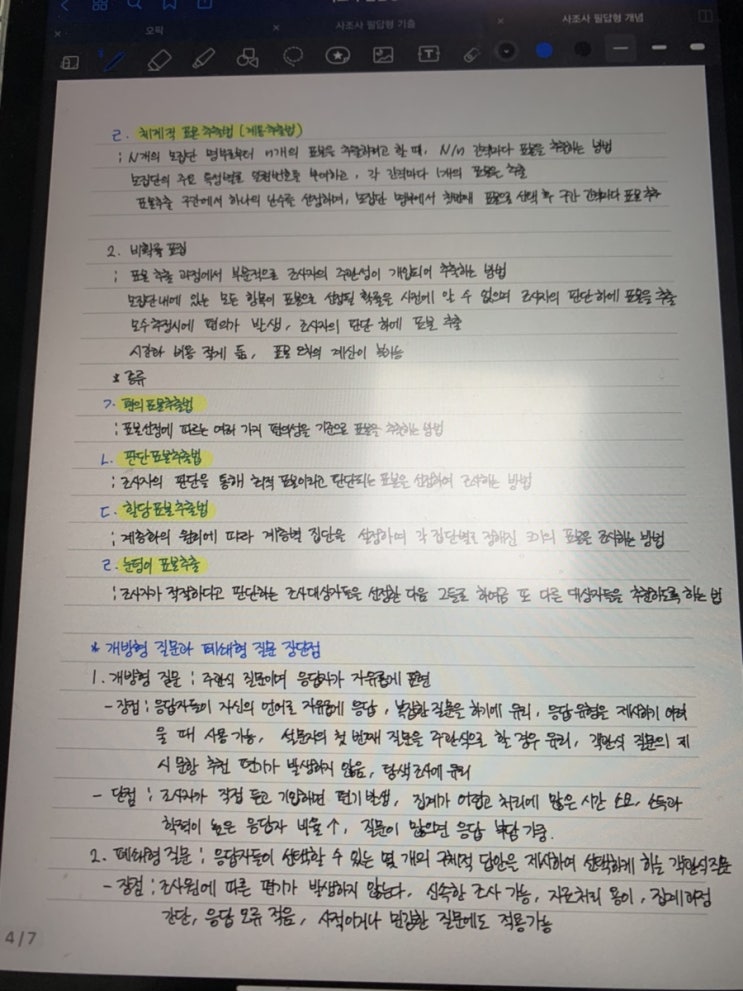 오픽
사조사 필답형 기출
사조사 필답형 개념
ㄹ. 체계적 표본추출법 (계통추출법)
: N개의 모집단 명부로부터 n개의 표본을 추출하려고 할 때, N/n 간격마다 표본을 추출하는 방법
모집단의 주요 특성별로 일련번호를 부여하고, 각 간격마다 1개의 표본을 추출
표본추출 구간에서 하나의 난수를 선정하여, 모집단 명부에서 첫번째 표본으로 선택 후 구간 간격마다 표본 추출
2. 비확률 표집
: 표본 추출 과정에서 부분적으로 조사자의 주관성이 개입되어 추출하는 방법
모집단 내에 있는 모든 항목이 표본으로 선정될 확률을 사전에 알 수 없으며 조사자의 판단하에 표본을 추출
모수추정시에 편의가 발생, 조사자의 판단 하에 표본 추출
시간과 비용 적게 듦, 표본 오차의 계산이 불가능
* 종류
ㄱ. 편의표본추출법
: 표본선정에 따르는 여러 가지 편의성을 기준으로 표본을 추출하는 방법
ㄴ. 판단표본추출법
: 조사자의 판단을 통해 최적 표본이라고 판단되는 표본을 선정하여 조사하는 방법
ㄷ. 할당표본추출법
: 계층화의 원리에 따라 계층별 집단을 설정하여 각 집단별로 정해진 크기의 표본을 조사하는 방법
ㄹ. 눈덩이 표본추출
: 조사자가 적절하다고 판단하는 조사대상자들을 선정한 다음 그들로 하여금 또 다른 대상자들을 추천하도록 하는 법
* 개방형 질문과 폐쇄형 질문 장단점
1. 개방형 질문 : 주관식 질문이며 응답자가 자유롭게 표현
- 장점 : 응답자들이 자신의 언어로 자유롭게 응답, 복잡한 질문을 하기에 유리, 응답 유형을 제시하기 어려
울 때 사용 가능, 설문지의 첫 번째 질문을 주관식으로 할 경우 유리, 객관식 질문의 제
시 문항 추천 편기가 발생하지 않음, 탐색조사에 유리
- 단점 : 조사자가 직접 듣고 기입하면 편기 발생, 집계가 어렵고 처리에 많은 시간 소요, 소득과
학력이 높은 응답자 비율↑, 질문이 많으면 응답 부담 가중.
2. 폐쇄형 질문 : 응답자들이 선택할 수 있는 몇 개의 구체적 답안을 제시하여 선택하게 하는 객관식질문
- 장점 : 조사원에 따른 편기가 발생하지 않는다, 신속한 조사 가능, 자료처리 용이, 집계과정
간단, 응답 오류 적음, 사적이거나 민감한 질문에도 적용가능
4/7